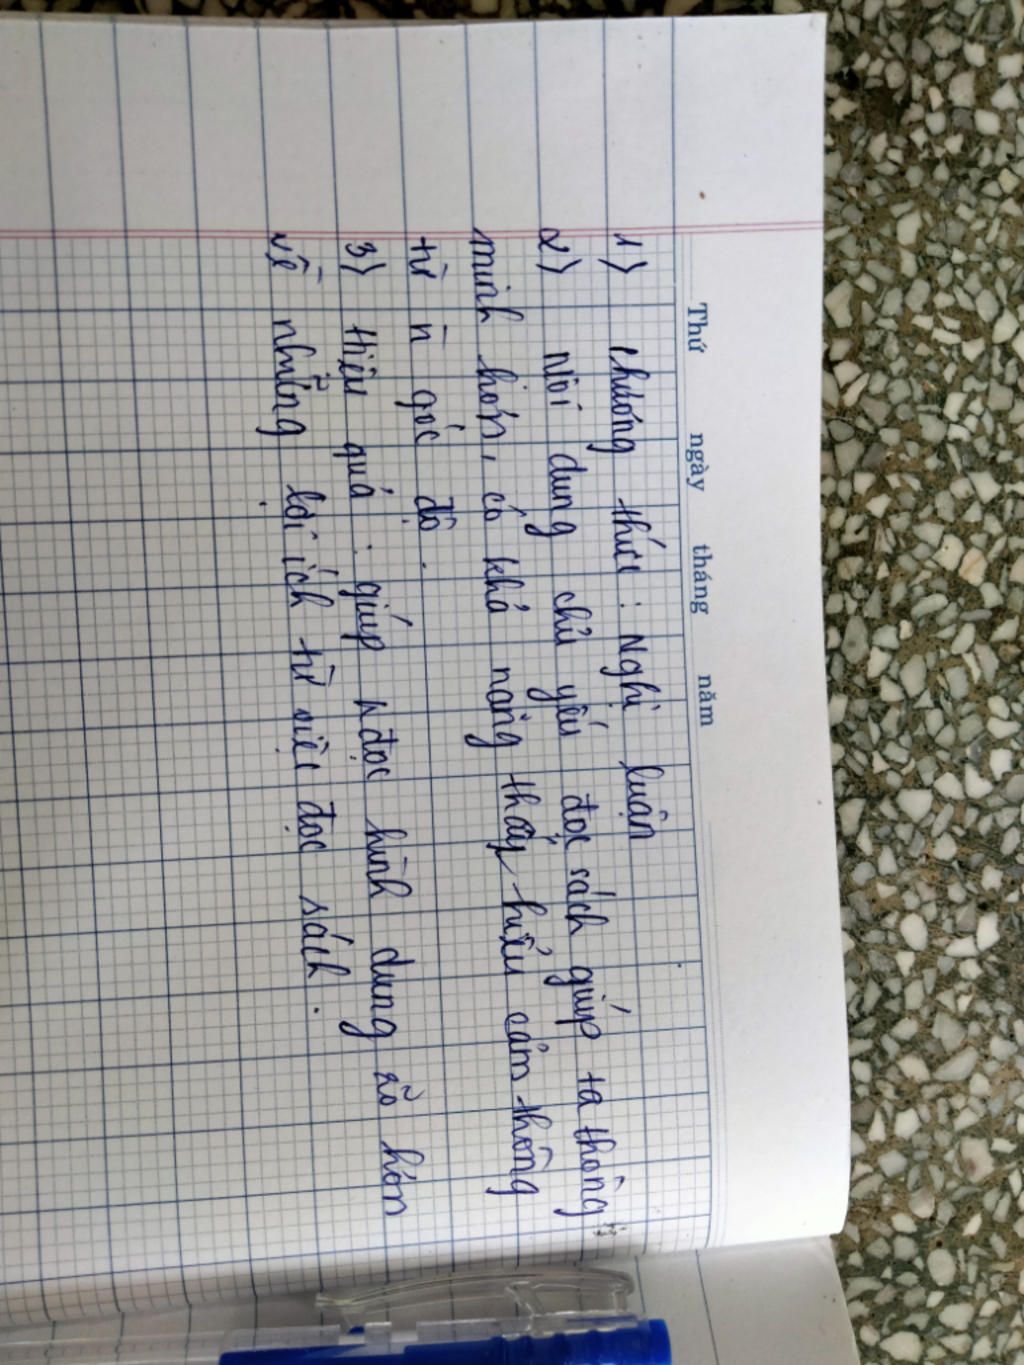 Thứ ngày tháng năm
1) Phương thức : Nghị luận
2) Nội dung chủ yếu đọc sách giúp ta thông
minh hơn, có khả năng thấy hiểu cảm thông
từ n góc độ.
3) Hiệu quả : giúp n đọc hình dung rõ hơn
về những lợi ích từ việc đọc sách.